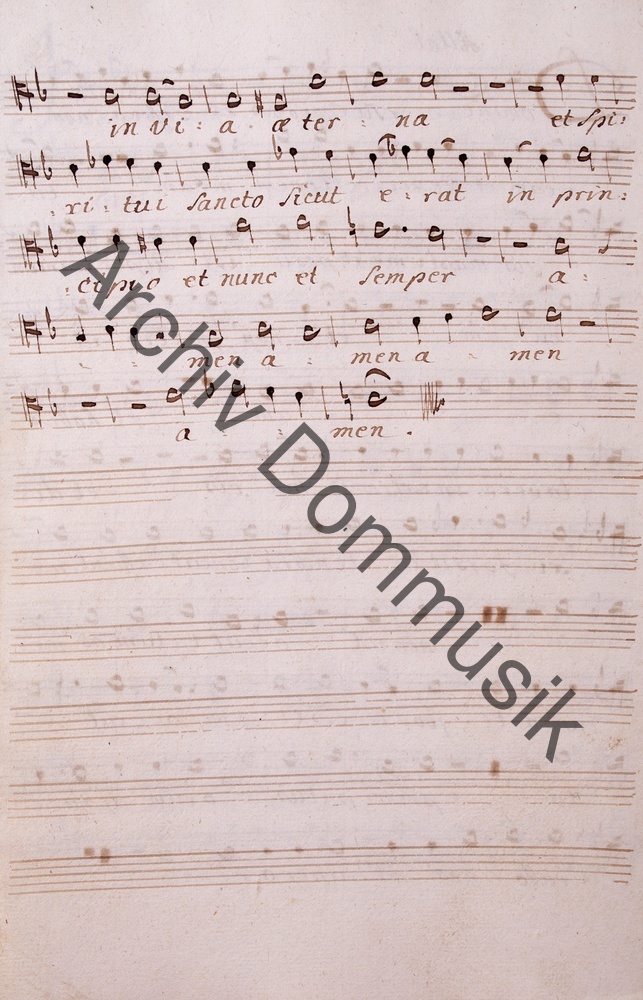 in vi : a æ ter : na et Spi :
: ri : tui Sancto Sicut e : rat in prin :
: cipio et nunc et Semper a :
: : men a : men a : men
a : : men .
Archiv Dommusik